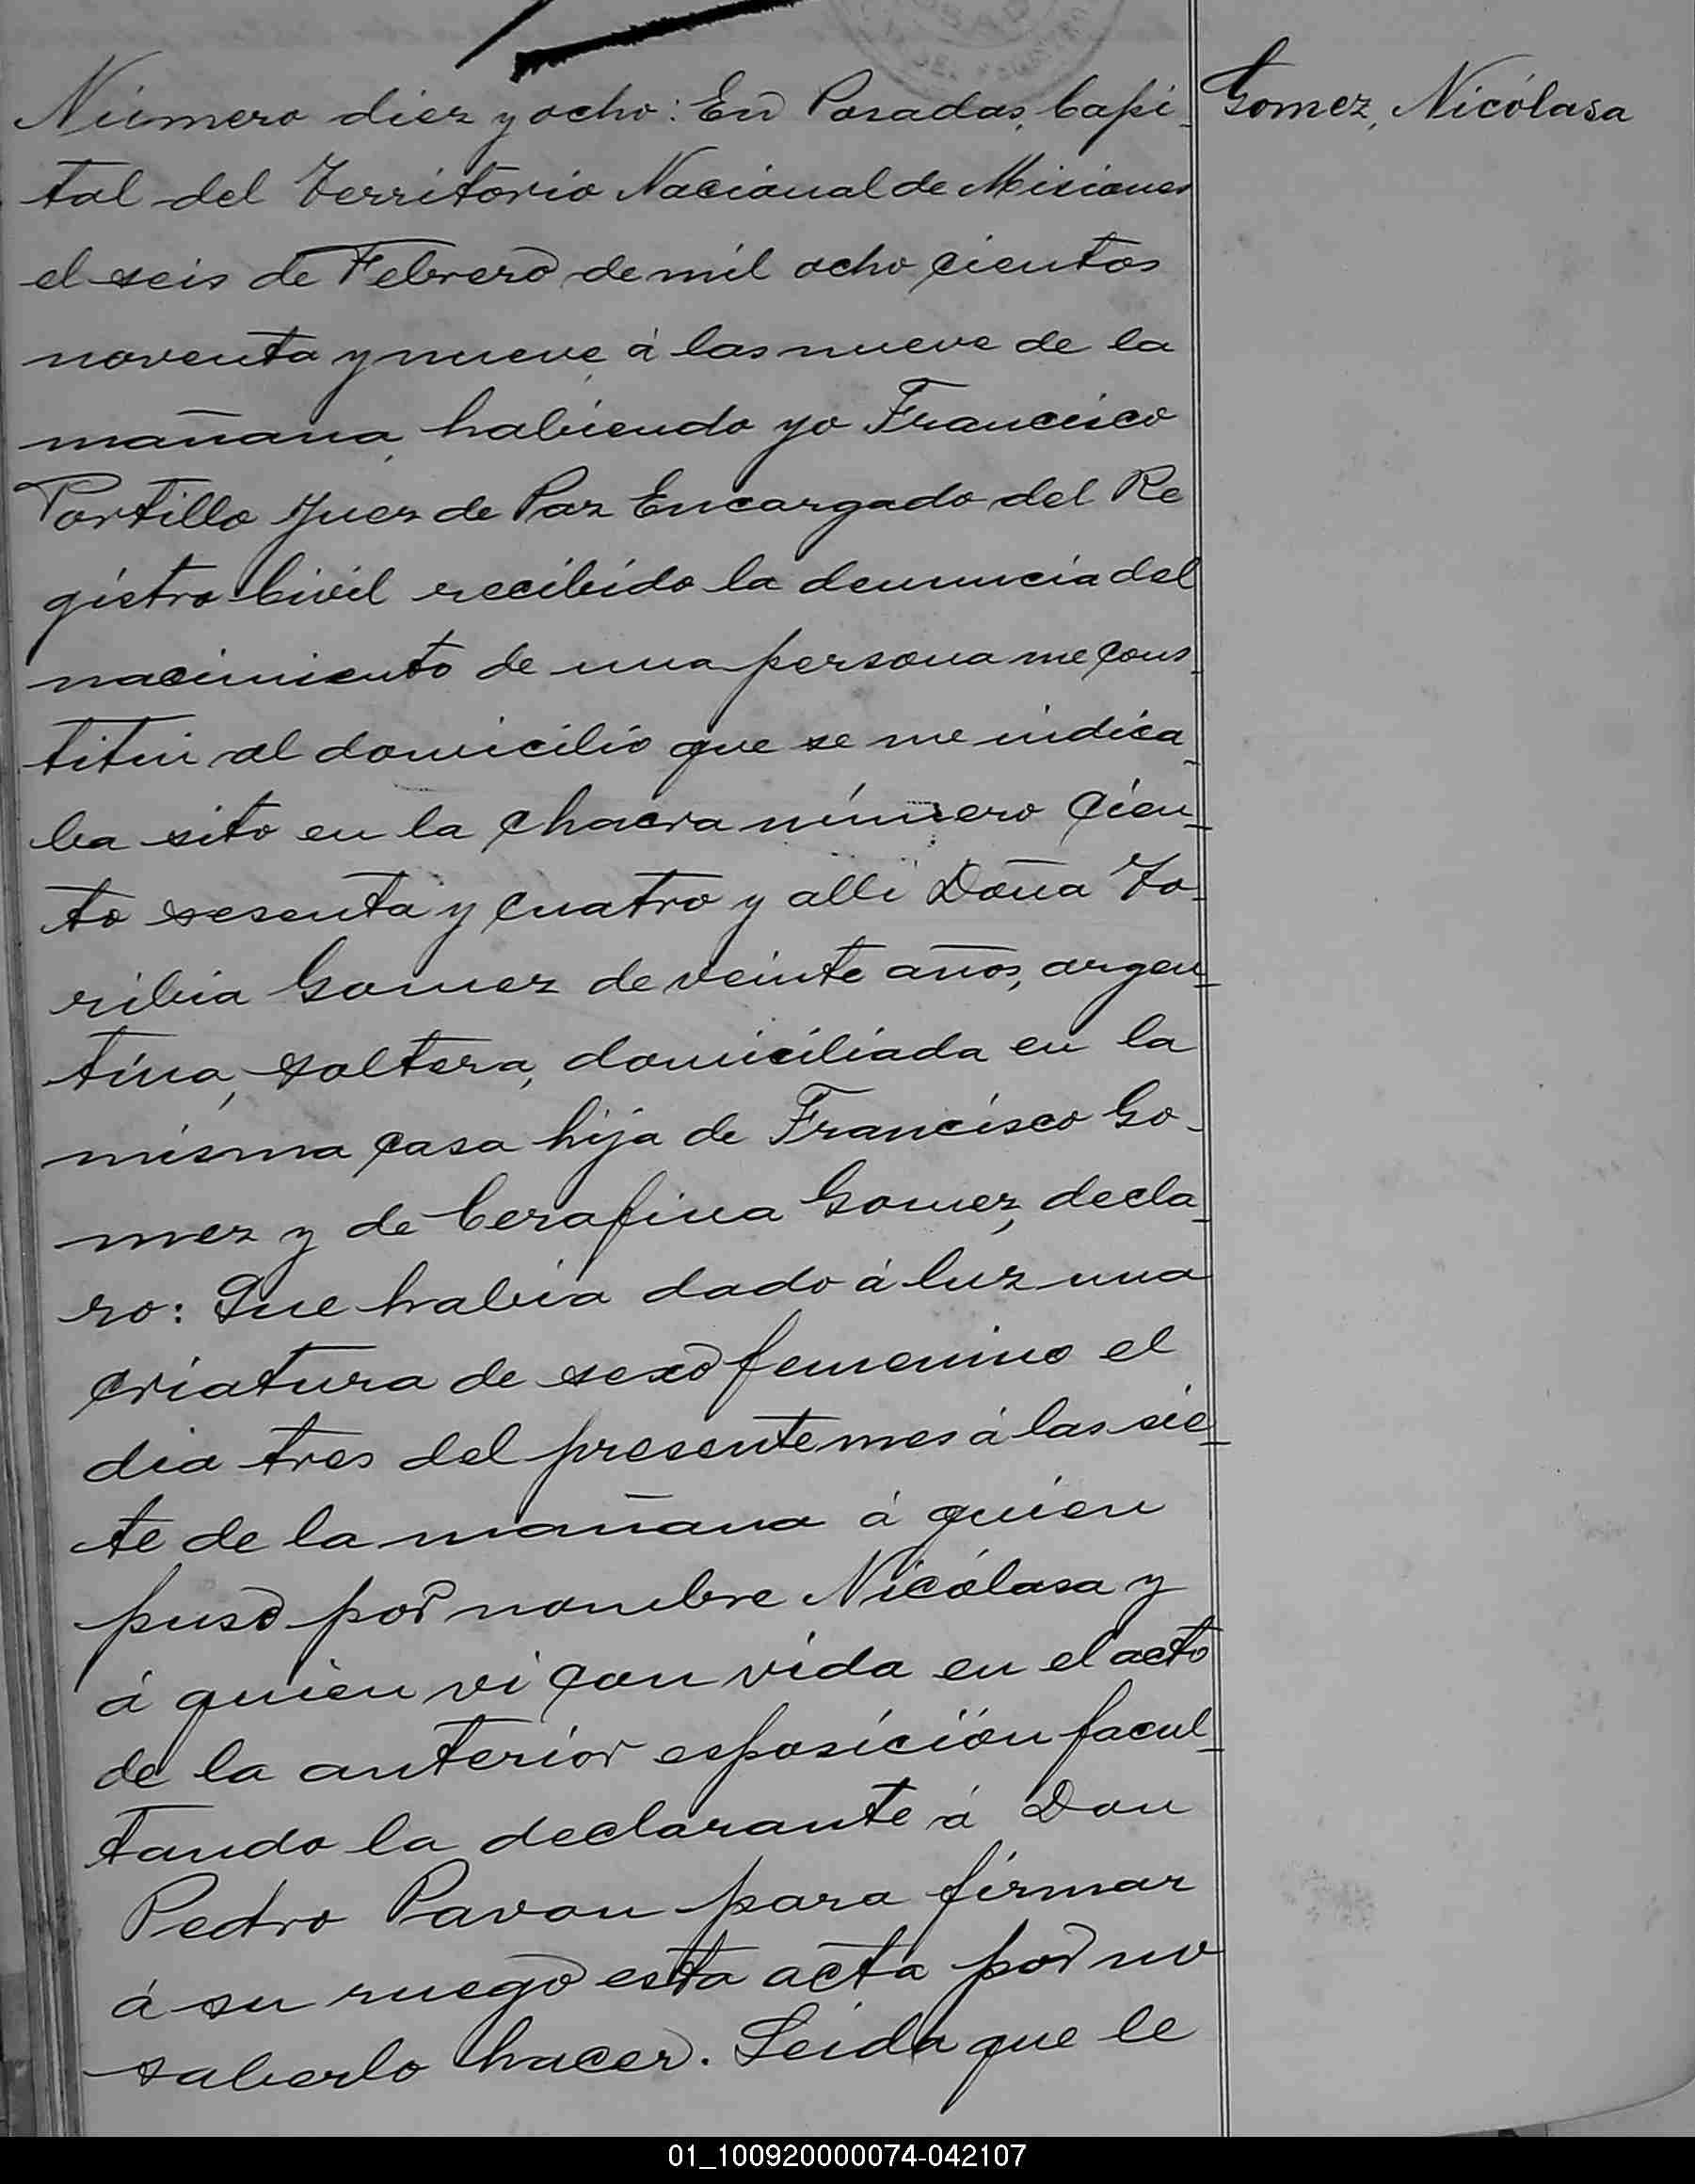 Número diez y ocho: En Posadas, Capi-
tal del Territorio Nacional de Misiones
el seis de Febrero de mil ocho cientos
noventa y nueve, á las nueve de la
mañana, habiendo yo Francisco
Portillo Juez de Paz Encargado del Re
gistro Civil recibido la denuncia del
nacimiento de una persona me cons-
titui al domicilio que se me indica-
ba sito en la chacra número cien-
to sesenta y cuatro y alli Doña To-
ribia Gomez de veinte años, argen-
tina, soltera, domiciliada en la
misma casa hija de Francisco Go-
mez y de Cerafina Gomez, decla-
ro: Que habia dado á luz una
criatura de sexo femenino el
dia tres del presente mes á las sie-
te de la mañana á quien
puso por nombre Nicólasa y
á quien vi con vida en el acto
de la anterior esposición facul-
tando la declarante á Don
Pedro Pavon para firmar
á su ruego esta acta por no
saberlo hacer. Leida que le
Gomez, Nicólasa
01_100920000074-042107